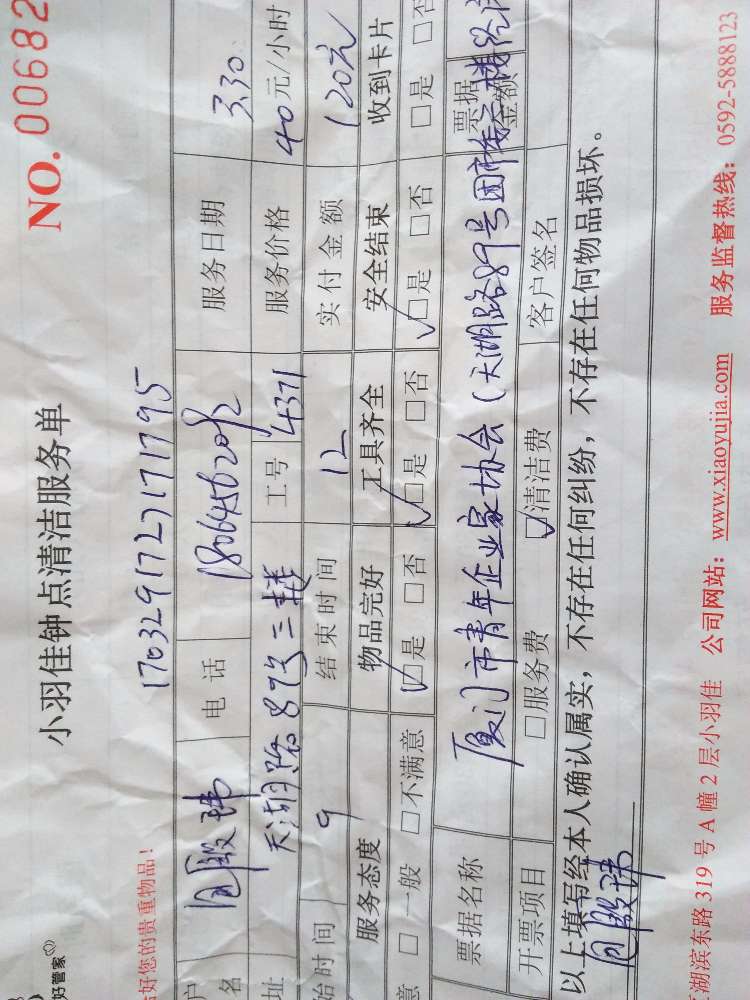 好管家
小羽佳钟点清洁服务单
NO. 00682
好您的贵重物品！
1703291727171795
户名 电话 18064562082 服务日期 3.30
址 天湖路89号三楼 工号 4371 服务价格 40元/小时
始时间 9 结束时间 12 实付金额 120元
服务态度 物品完好 工具齐全 安全结束 收到卡片
意 □一般 □不满意 ☑是 □否 ☑是 □否 ☑是 □否 □是 □否
票据名称 厦门市青年企业家协会（天湖路89号团市委三楼 票据金额
开票项目 □服务费 ☑清洁费 客户签名
以上填写经本人确认属实，不存在任何纠纷，不存在任何物品损坏。
湖滨东路319号A幢2层小羽佳 公司网站：www.xiaoyujia.com 服务监督热线：0592-5888123